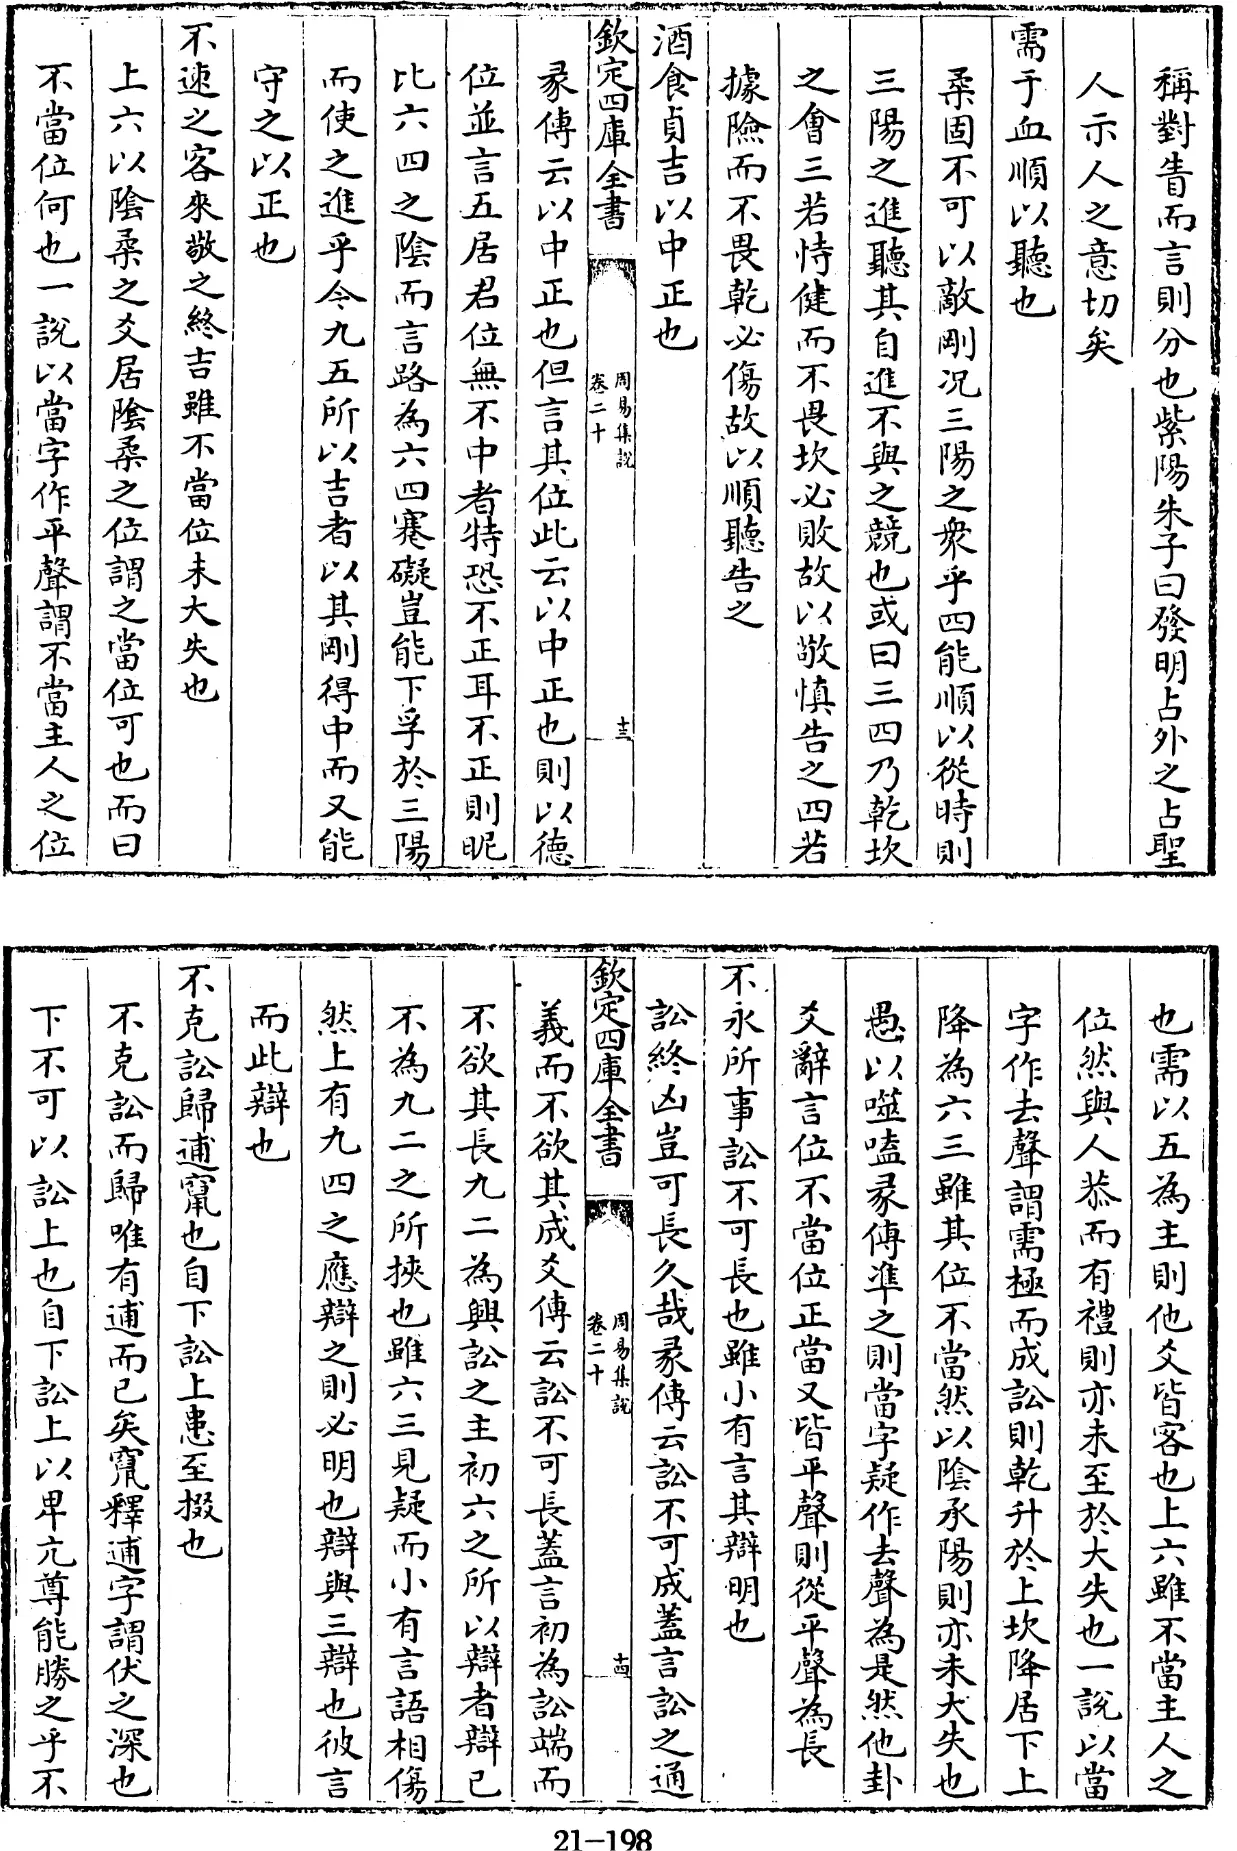 稱對眚而言則分也紫陽朱子曰發明占外之占聖
人示人之意切矣
需于血順以聽也
柔固不可以敵剛况三陽之衆乎四能順以從時則
三陽之進聽其自進不與之競也或曰三四乃乾坎
之會三若恃健而不畏坎必敗故以敬慎告之四若
據險而不畏乾必傷故以順聽告之
酒食貞吉以中正也
欽定四庫全書
周易集說
卷二十
十三
彖傳云以中正也但言其位此云以中正也則以德
位並言五居君位無不中者特恐不正耳不正則昵
比六四之陰而言路為六四蹇礙豈能下孚於三陽
而使之進乎今九五所以吉者以其剛得中而又能
守之以正也
不速之客來敬之終吉雖不當位未大失也
上六以陰柔之爻居陰柔之位謂之當位可也而曰
不當位何也一說以當字作平聲謂不當主人之位
也需以五為主則他爻皆客也上六雖不當主人之
位然與人恭而有禮則亦未至於大失也一說以當
字作去聲謂需極而成訟則乾升於上坎降居下上
降為六三雖其位不當然以陰承陽則亦未大失也
愚以噬嗑彖傳準之則當字疑作去聲為是然他卦
爻辭言位不當位正當又皆平聲則從平聲為長
不永所事訟不可長也雖小有言其辯明也
訟終凶豈可長久哉彖傳云訟不可成蓋言訟之通
欽定四庫全書
周易集說
卷二十
十四
義而不欲其成爻傳云訟不可長蓋言初為訟端而
不欲其長九二為興訟之主初六之所以辯者辯己
不為九二之所挾也雖六三見疑而小有言語相傷
然上有九四之應辯之則必明也辯與三辯也彼言
而此辯也
不克訟歸逋竄也自下訟上患至掇也
不克訟而歸唯有逋而已矣竄釋逋字謂伏之深也
下不可以訟上也自下訟上以卑亢尊能勝之乎不
21-198